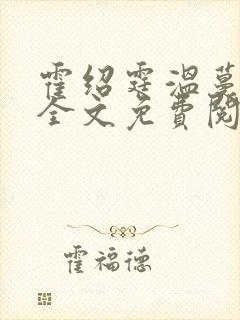 霍绍霆温蔓
全文免费阅
霍福德